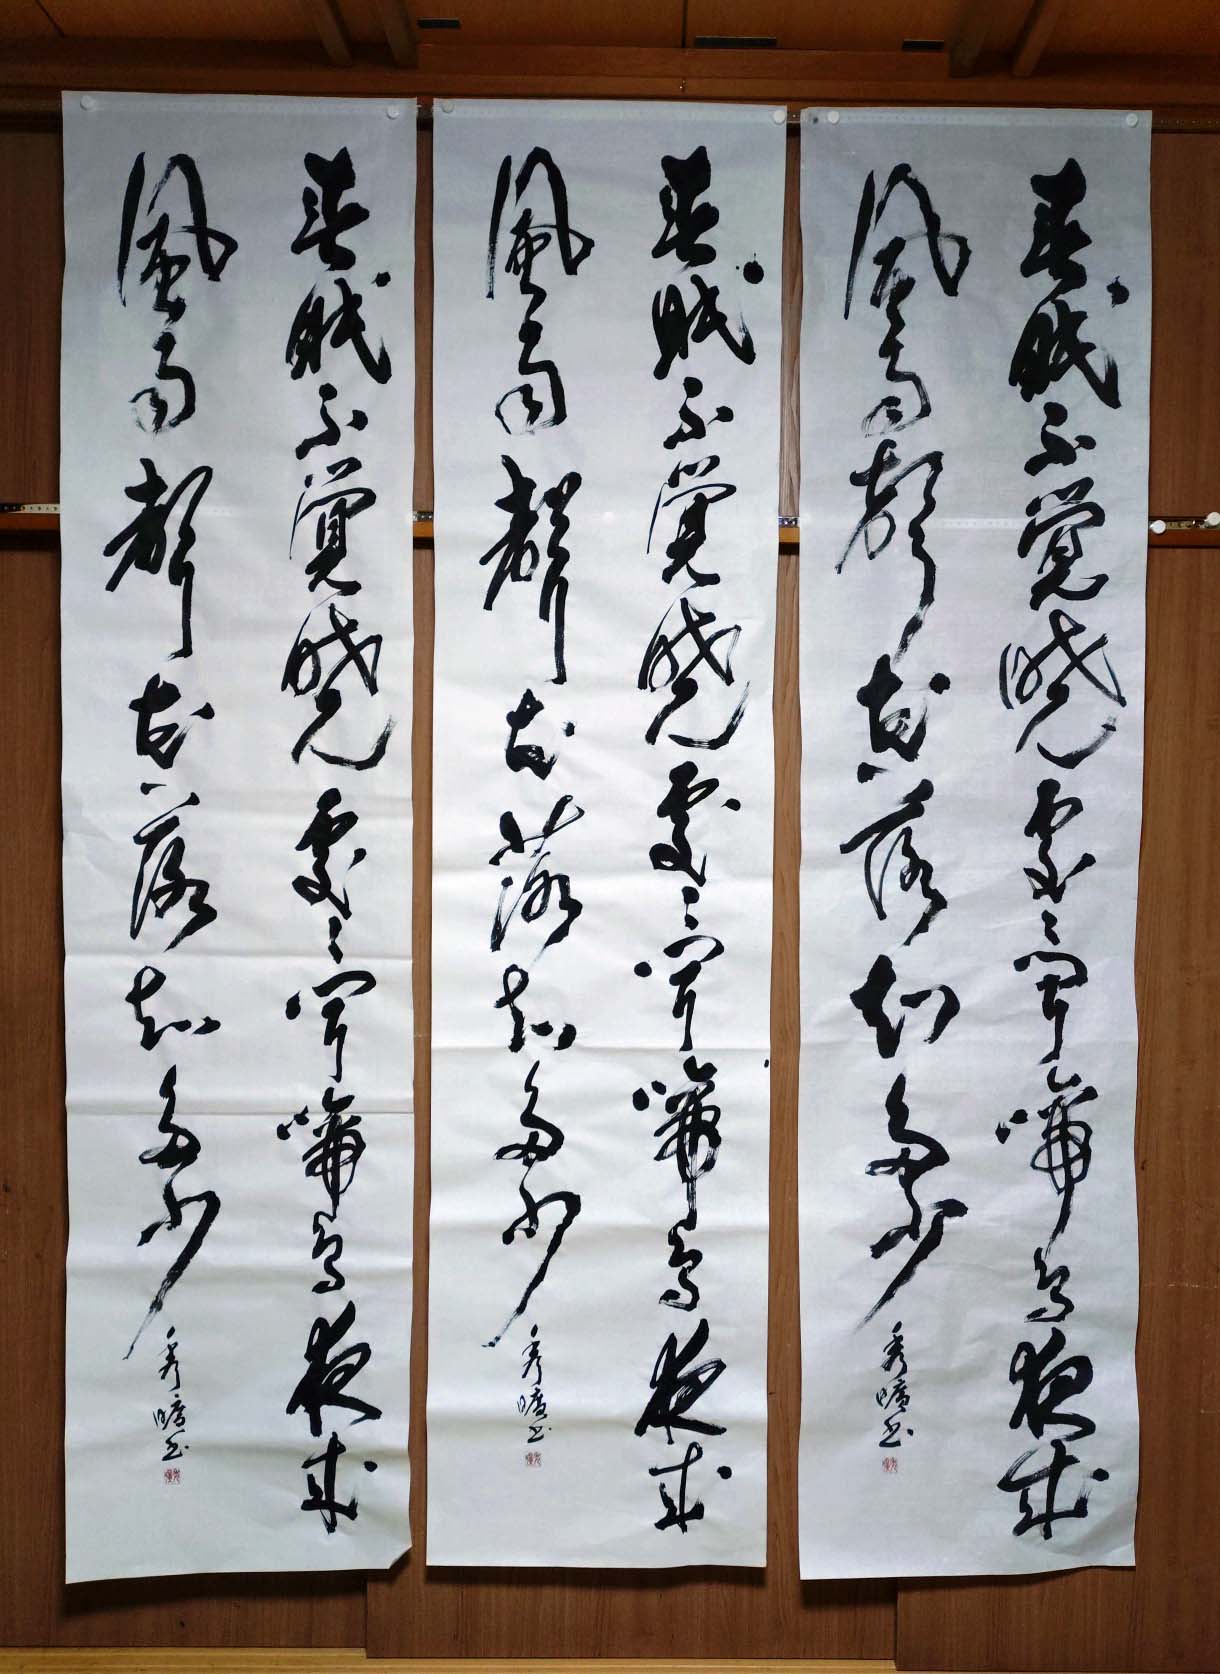 春眠不覺曉處々聞啼鳥夜來
風雨聲花落知多少
秀曠書
春眠不覺曉處々聞啼鳥夜來
風雨聲花落知多少
秀曠書
春眠不覺曉處々聞啼鳥夜來
風雨聲花落知多少
秀曠書